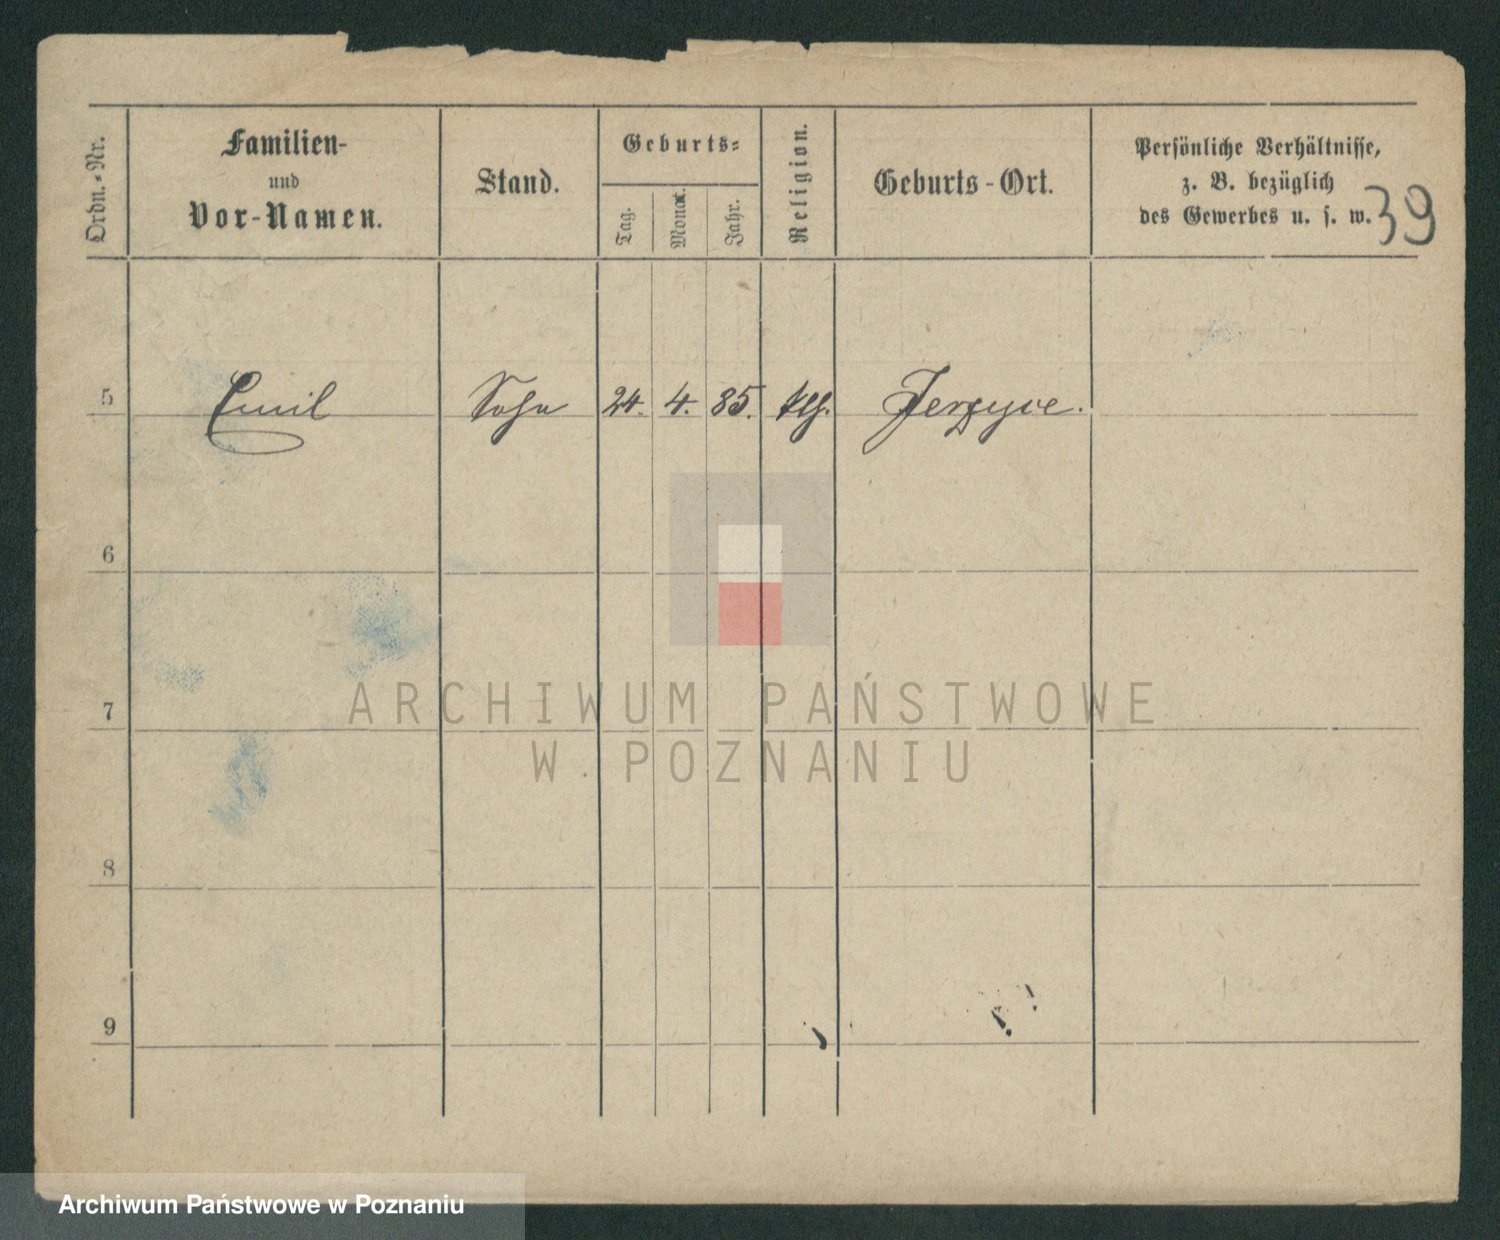 Ordn.-Nr.
Familien-
und
Vor-Namen.
Stand.
Geburts-
Tag.
Monat.
Jahr.
Religion.
Geburts-Ort.
Persönliche Verhältnisse,
z. B. bezüglich
des Gewerbes u. s. w.
39
5 Emil Sohn 24. 4. 85. kth. Jerzyce.
6
7
8
9
ARCHIWUM PAŃSTWOWE
W POZNANIU
Archiwum Państwowe w Poznaniu